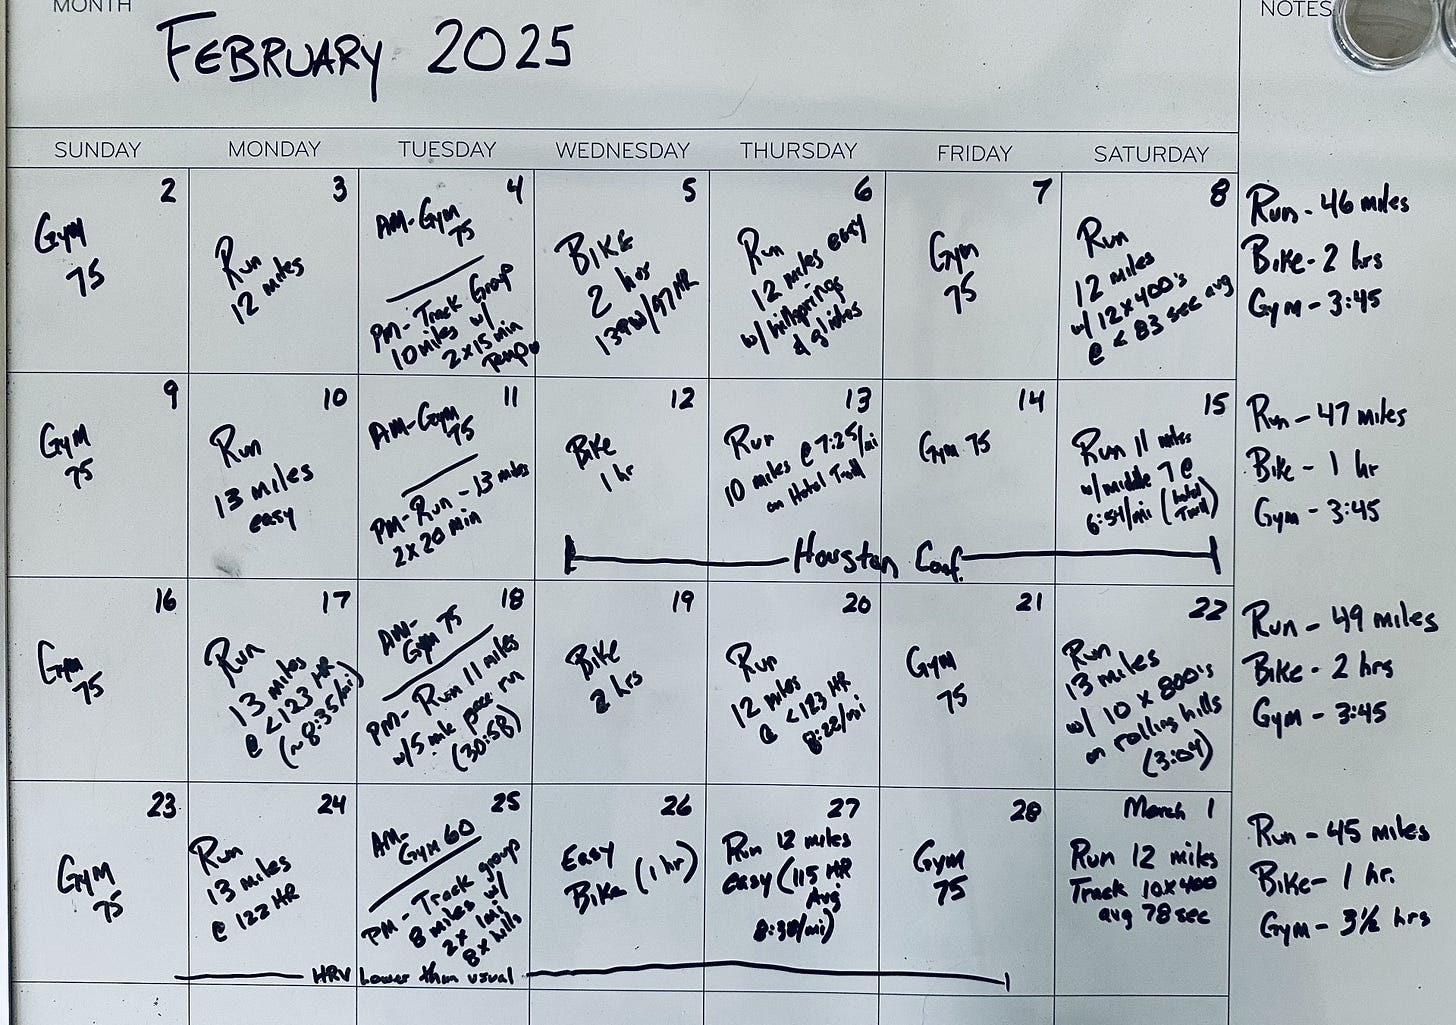 MONTH
NOTES
FEBRUARY 2025
SUNDAY MONDAY TUESDAY WEDNESDAY THURSDAY FRIDAY SATURDAY
2
Gym
75
3
Run
12 miles
4
AM-Gym
75
PM-Track Group
10 miles w/
2x15 min
Tempo
5
BIKE
2 hrs
139w/97HR
6
Run
12 miles easy
w/ hillsprings
& glides
7
Gym
75
8
Run
12 miles
w/ 12x400's
@ < 83 sec avg
Run - 46 miles
Bike - 2 hrs
Gym - 3:45
9
Gym
75
10
Run
13 miles
easy
11
AM-Gym
75
PM-Run - 13 miles
2x20 min
12
Bike
1 hr
13
Run
10 miles @ 7:25/mi
on Hotel Tmill
14
Gym 75
15
Run 11 miles
w/ middle 7 @
6:54/mi (hotel
Tmill)
Houston Conf.
Run - 47 miles
Bike - 1 hr
Gym - 3:45
16
Gym
75
17
Run
13 miles
@ <123 HR
(~8:35/mi)
18
AM-
Gym 75
PM- Run 11 miles
w/5 mile pace run
(30:58)
19
Bike
2 hrs
20
Run
12 miles
@ <123 HR
8:22/mi
21
Gym
75
22
Run
13 miles
w/ 10 x 800's
on rolling hills
(3:04)
Run - 49 miles
Bike - 2 hrs
Gym - 3:45
23
Gym
75
24
Run
13 miles
@ 122 HR
25
AM-
Gym 60
PM - Track group
8 miles w/
2x 1mi
8x hills
26
Easy
Bike (1 hr)
27
Run 12 miles
easy (115 HR
Avg
8:38/mi)
28
Gym
75
March 1
Run 12 miles
Track 10x400
avg 78 sec
HRV Lower than usual
Run - 45 miles
Bike - 1 hr.
Gym - 3½ hrs